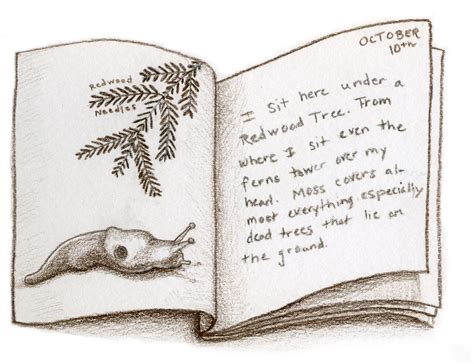 Redwood
Needles
OCTOBER
10th
I sit here under a
Redwood Tree. From
where I sit even the
ferns tower over my
head. Moss covers al-
most everything especially
dead trees that lie on
the ground.